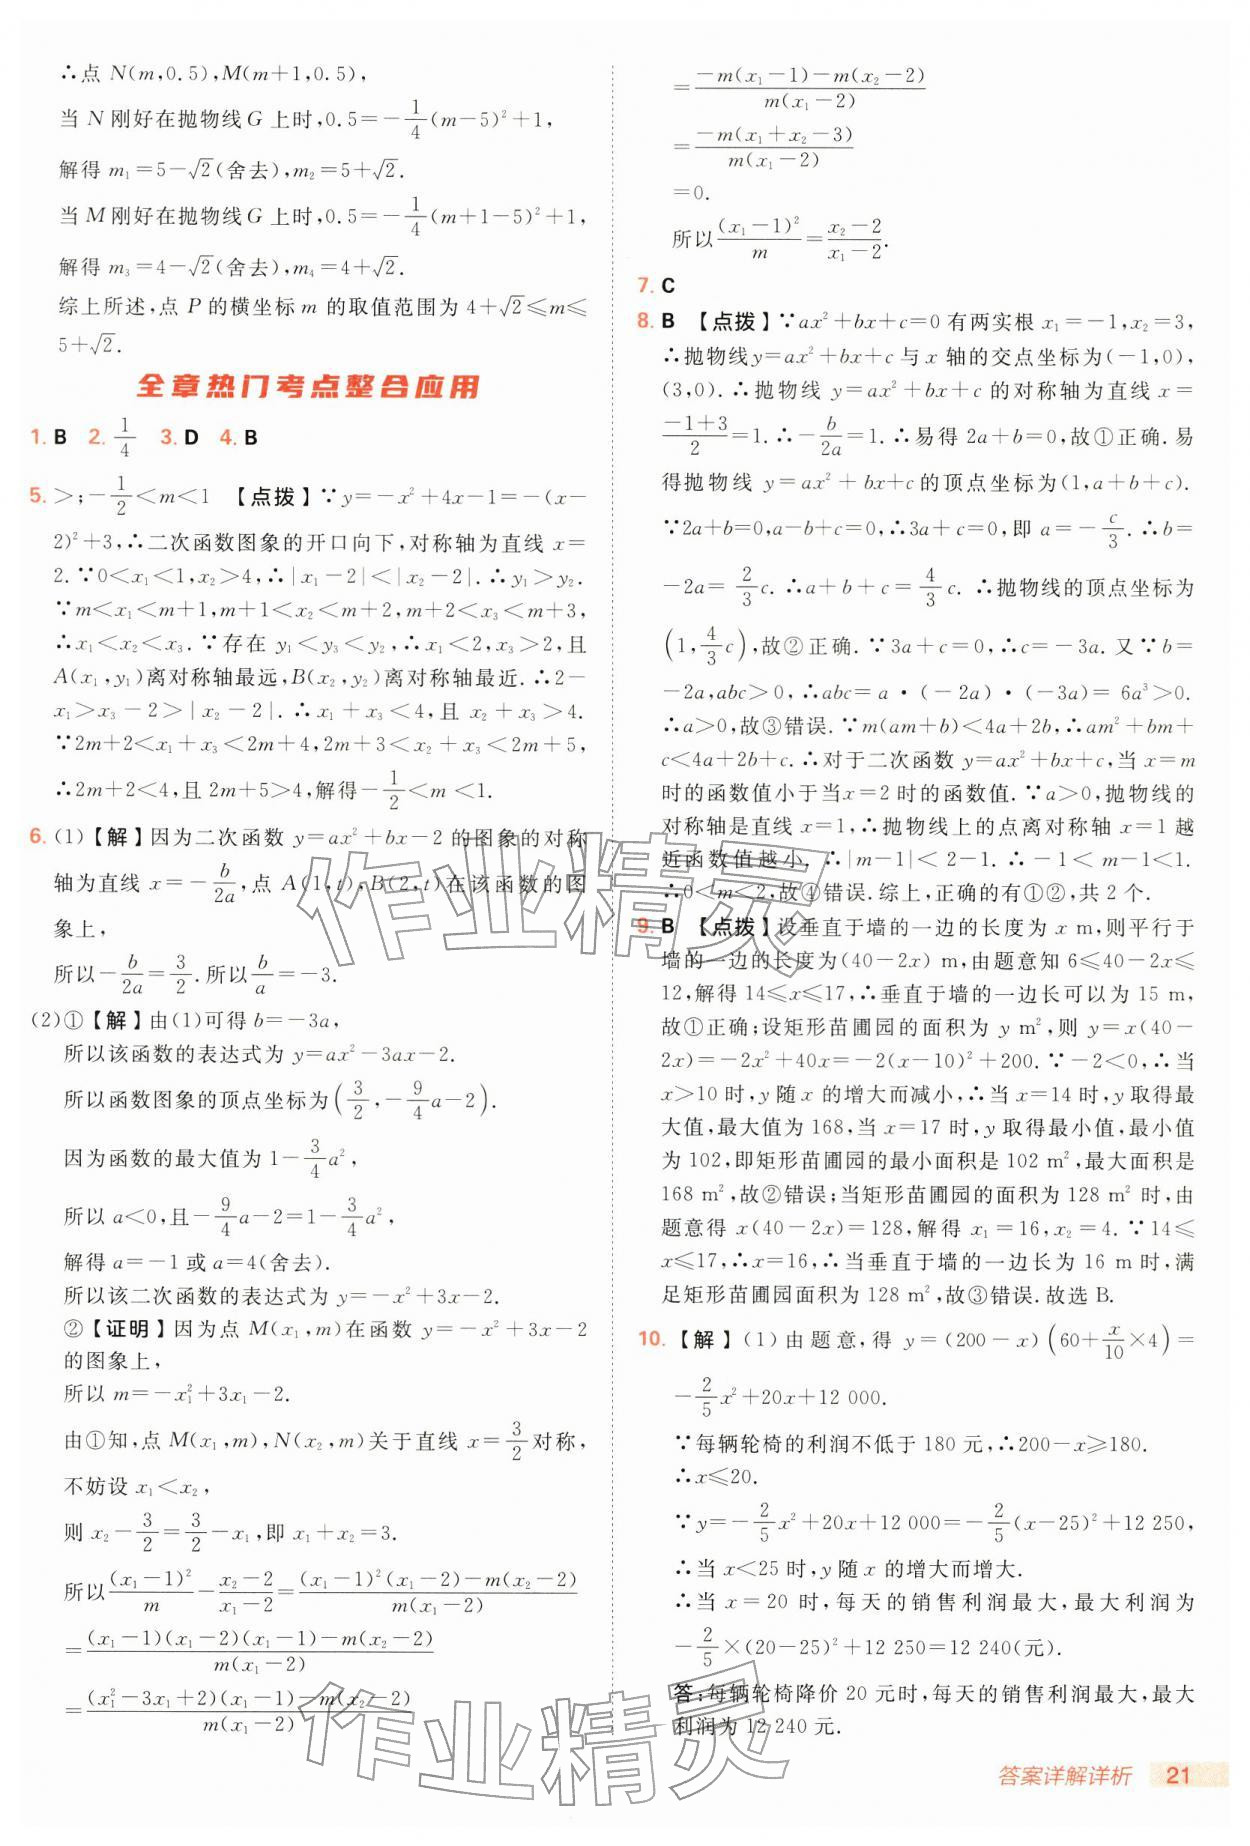 ∴点 N(m,0.5),M(m+1,0.5),
当 N 刚好在抛物线 G 上时,0.5=-1/4(m-5)²+1,
解得 m₁=5-√2(舍去),m₂=5+√2.
当 M 刚好在抛物线 G 上时,0.5=-1/4(m+1-5)²+1,
解得 m₃=4-√2(舍去),m₄=4+√2.
综上所述,点 P 的横坐标 m 的取值范围为 4+√2≤m≤
5+√2.
全章热门考点整合应用
1. B 2. 1/4 3. D 4. B
5. >;-1/2<m<1 【点拨】∵y=-x²+4x-1=-(x-
2)²+3,∴二次函数图象的开口向下,对称轴为直线 x=
2.∵0<x₁<1,x₂>4,∴|x₁-2|<|x₂-2|.∴y₁>y₂.
∵m<x₁<m+1,m+1<x₂<m+2,m+2<x₃<m+3,
∴x₁<x₂<x₃.∵存在 y₁<y₃<y₂,∴x₁<2,x₃>2,且
A(x₁,y₁)离对称轴最远,B(x₂,y₂)离对称轴最近.∴2-
x₁>x₃-2>|x₂-2|.∴x₁+x₃<4,且 x₂+x₃>4.
∵2m+2<x₁+x₃<2m+4,2m+3<x₂+x₃<2m+5,
∴2m+2<4,且 2m+5>4,解得-1/2<m<1.
6. (1)【解】因为二次函数 y=ax²+bx-2 的图象的对称
轴为直线 x=-b/2a,点 A(1,t),B(2,t)在该函数的图
象上,
所以-b/2a=3/2.所以b/a=-3.
(2)①【解】由(1)可得 b=-3a,
所以该函数的表达式为 y=ax²-3ax-2.
所以函数图象的顶点坐标为(3/2,-9/4a-2).
因为函数的最大值为 1-3/4a²,
所以 a<0,且-9/4a-2=1-3/4a²,
解得 a=-1 或 a=4(舍去).
所以该二次函数的表达式为 y=-x²+3x-2.
②【证明】因为点 M(x₁,m)在函数 y=-x²+3x-2
的图象上,
所以 m=-x₁²+3x₁-2.
由①知,点 M(x₁,m),N(x₂,m)关于直线 x=3/2对称,
不妨设 x₁<x₂,
则 x₂-3/2=3/2-x₁,即 x₁+x₂=3.
所以(x₁-1)²/m-(x₂-2)/(x₁-2)=((x₁-1)²(x₁-2)-m(x₂-2))/(m(x₁-2))
=((x₁-1)(x₁-2)(x₁-1)-m(x₂-2))/(m(x₁-2))
=((x₁²-3x₁+2)(x₁-1)-m(x₂-2))/(m(x₁-2))
=(-m(x₁-1)-m(x₂-2))/(m(x₁-2))
=(-m(x₁+x₂-3))/(m(x₁-2))
=0.
所以(x₁-1)²/m=(x₂-2)/(x₁-2).
7. C
8. B 【点拨】∵ax²+bx+c=0 有两实根 x₁=-1,x₂=3,
∴抛物线y=ax²+bx+c 与 x 轴的交点坐标为(-1,0),
(3,0).∴抛物线 y=ax²+bx+c 的对称轴为直线 x=
(-1+3)/2=1.∴-b/2a=1.∴易得 2a+b=0,故①正确.易
得抛物线 y=ax²+bx+c 的顶点坐标为(1,a+b+c).
∵2a+b=0,a-b+c=0,∴3a+c=0,即 a=-c/3.∴b=
-2a=2/3c.∴a+b+c=4/3c.∴抛物线的顶点坐标为
(1,4/3c),故②正确.∵3a+c=0,∴c=-3a.又∵b=
-2a,abc>0,∴abc=a·(-2a)·(-3a)=6a³>0.
∴a>0,故③错误.∵m(am+b)<4a+2b,∴am²+bm+
c<4a+2b+c.∴对于二次函数 y=ax²+bx+c,当 x=m
时的函数值小于当x=2 时的函数值.∵a>0,抛物线
的对称轴是直线 x=1,∴抛物线上的点离对称轴 x=1 越
近函数值越小.∴|m-1|<2-1.∴-1<m-1<1.
∴0<m<2,故④错误.综上,正确的有①②,共 2 个.
9. B 【点拨】设垂直于墙的一边的长度为 x m,则平行于
墙的一边的长度为(40-2x) m,由题意知 6≤40-2x≤
12,解得 14≤x≤17,∴垂直于墙的一边长可以为 15 m,
故①正确;设矩形苗圃园的面积为 y m²,则 y=x(40-
2x)=-2x²+40x=-2(x-10)²+200.∵-2<0,∴当
x>10 时,y 随 x 的增大而减小,∴当 x=14 时,y 取得最
大值,最大值为 168,当 x=17 时,y 取得最小值,最小值
为 102,即矩形苗圃园的最小面积是 102 m²,最大面积是
168 m²,故②错误;当矩形苗圃园的面积为 128 m² 时,由
题意得 x(40-2x)=128,解得 x₁=16,x₂=4.∵14≤
x≤17,∴x=16,∴当垂直于墙的一边长为 16 m 时,满
足矩形苗圃园面积为 128 m²,故③错误.故选 B.
10. 【解】(1)由题意,得 y=(200-x)(60+x/10×4)=
-2/5x²+20x+12 000.
∵每辆轮椅的利润不低于 180 元,∴200-x≥180.
∴x≤20.
∵y=-2/5x²+20x+12 000=-2/5(x-25)²+12 250,
∴当 x<25 时,y 随 x 的增大而增大.
∴当 x=20 时,每天的销售利润最大,最大利润为
-2/5×(20-25)²+12 250=12 240(元).
答:每辆轮椅降价 20 元时,每天的销售利润最大,最大
利润为 12 240 元.
作业精灵
作业精灵
答案详解详析 21